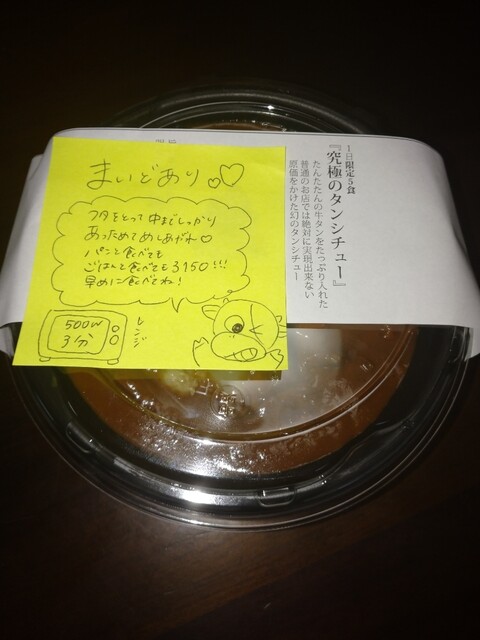 まいどあり♡
フタをとって中までしっかり
あっためてめしあがれ♡
パンと食べても
ごはんで食べても3150!!!
早めに食べてね!
500W
3分
レンジ
1日限定5食
『究極のタンシチュー』
たんたたんの牛タンをたっぷり入れた
普通のお店では絶対に実現出来ない
原価をかけた幻のタンシチュー